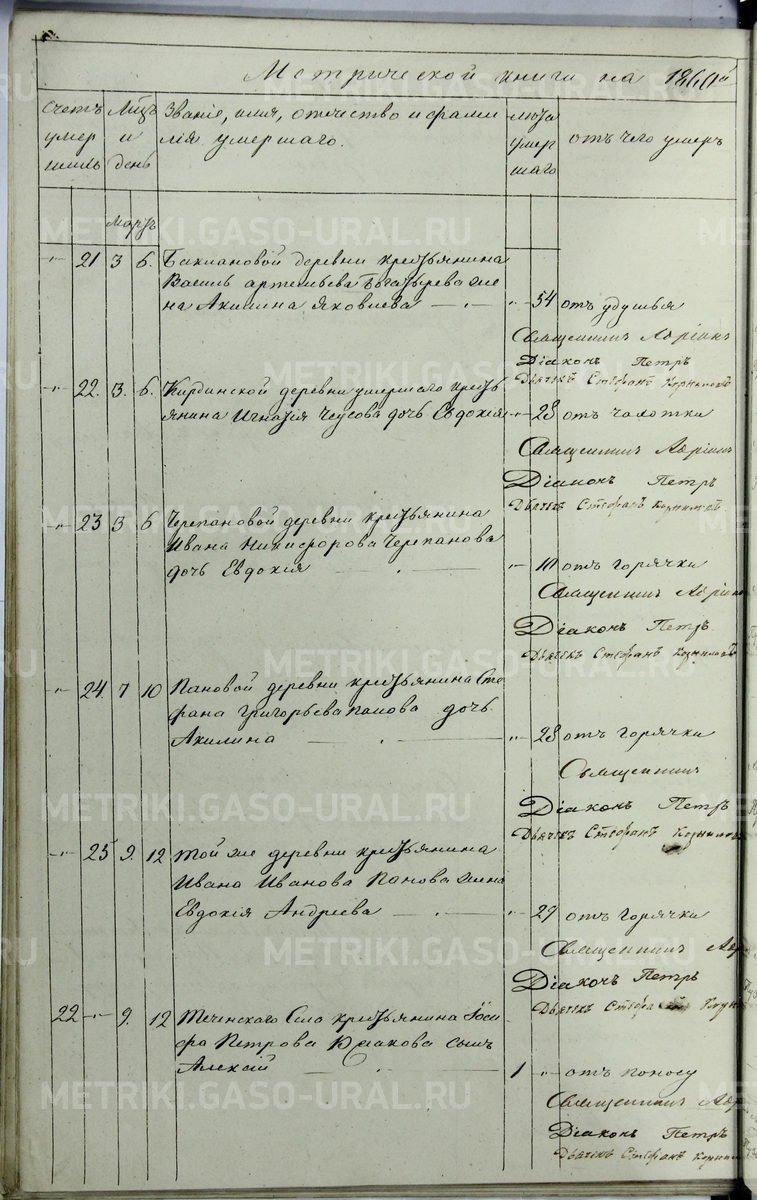 Метрической книги на 1860й
Счетъ умершихъ
Мцъ и день
Званіе, имя, отчество и фамилія умершаго.
лѣта умершаго
отъ чего умеръ
Мартъ
21 3 6. Баклановой деревни крестьянина
Василья Артемьева Богатырева же
на Акилина Яковлева 54 отъ удушья
Священникъ Адріанъ
Діаконъ Петръ
Дьячекъ Стефанъ
22. 3. 6. Кирдинской деревни умершаго кресть
янина Игнатія Чеусова дочь Евдокія 28 отъ чахотки
Священникъ Адріанъ
Діаконъ Петръ
Дьячекъ Стефанъ
23 3 6 Черепановой деревни крестьянина
Ивана Никифорова Черепанова
дочь Евдокія 10 отъ горячки
Священникъ Адріанъ
Діаконъ Петръ
Дьячекъ Стефанъ
24. 7 10 Пановой деревни крестьянина Сте
фана Григорьева Панова дочь
Акилина 28 отъ горячки
Священникъ
Діаконъ Петръ
Дьячекъ Стефанъ
25 9. 12 Той же деревни крестьянина
Ивана Иванова Панова жена
Евдокія Андреева 29 отъ горячки
Священникъ
Діаконъ Петръ
Дьячекъ
22 9. 12 Теченскаго Села крестьянина Іоси
фа Петрова сынъ
Алексій 1 отъ поносу
Священникъ
Діаконъ Петръ
Дьячекъ Стефанъ
METRIKI.GASO-URAL.RU